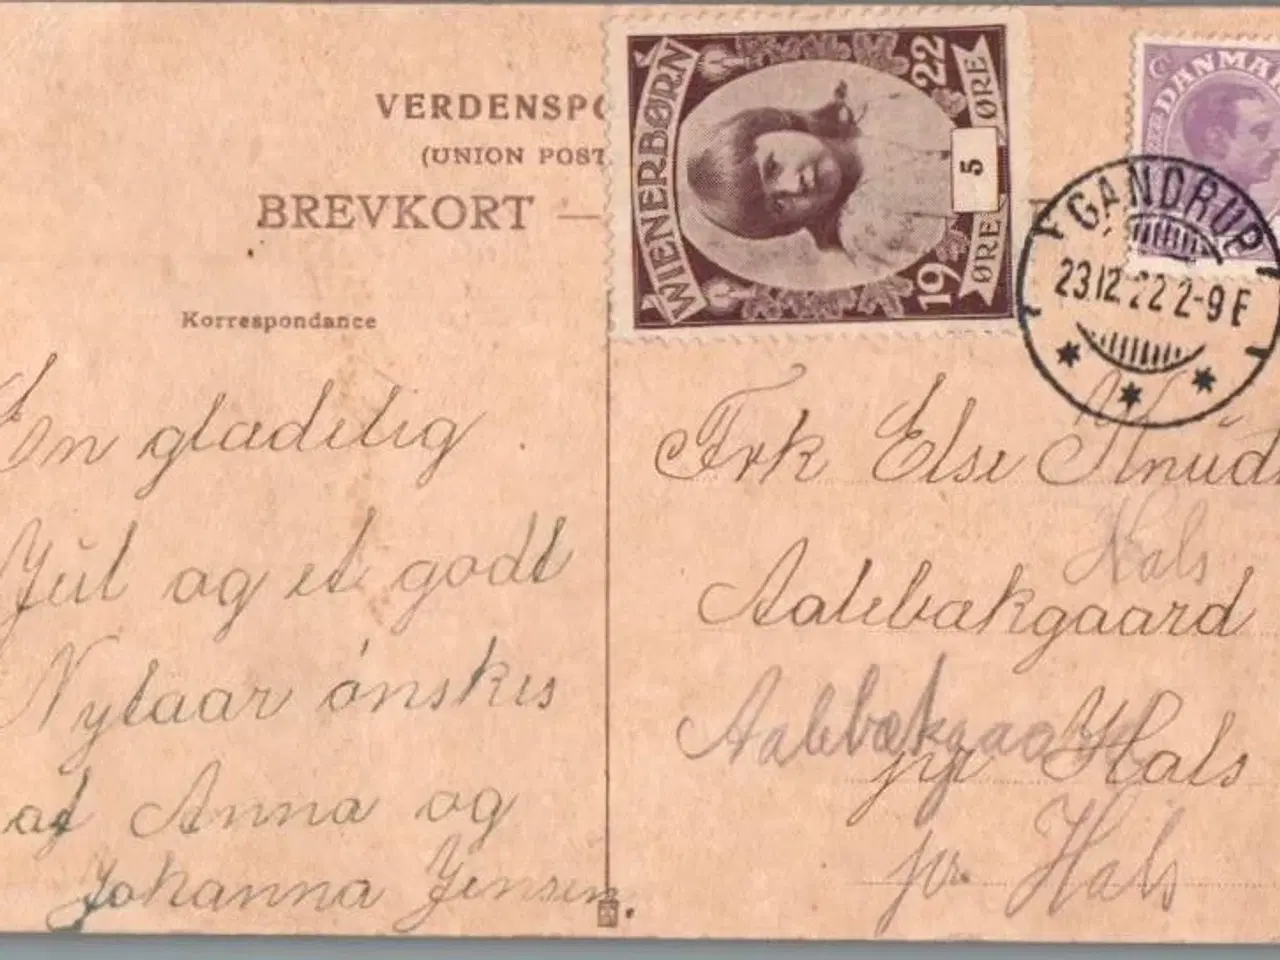 VERDENSPO
(UNION POST
BREVKORT —
Korrespondance
WIENERBØRN
1922
5
ØRE ØRE
DANMA
GANDRUP
23.12.22 2-9 E
En gladelig
Jul og et godt
Nytaar ønskes
af Anna og
Johanna Jensen.
Frk Else Knud
Hals
Aalebækgaard
Aalebækgaard
pr Hals
pr. Hals